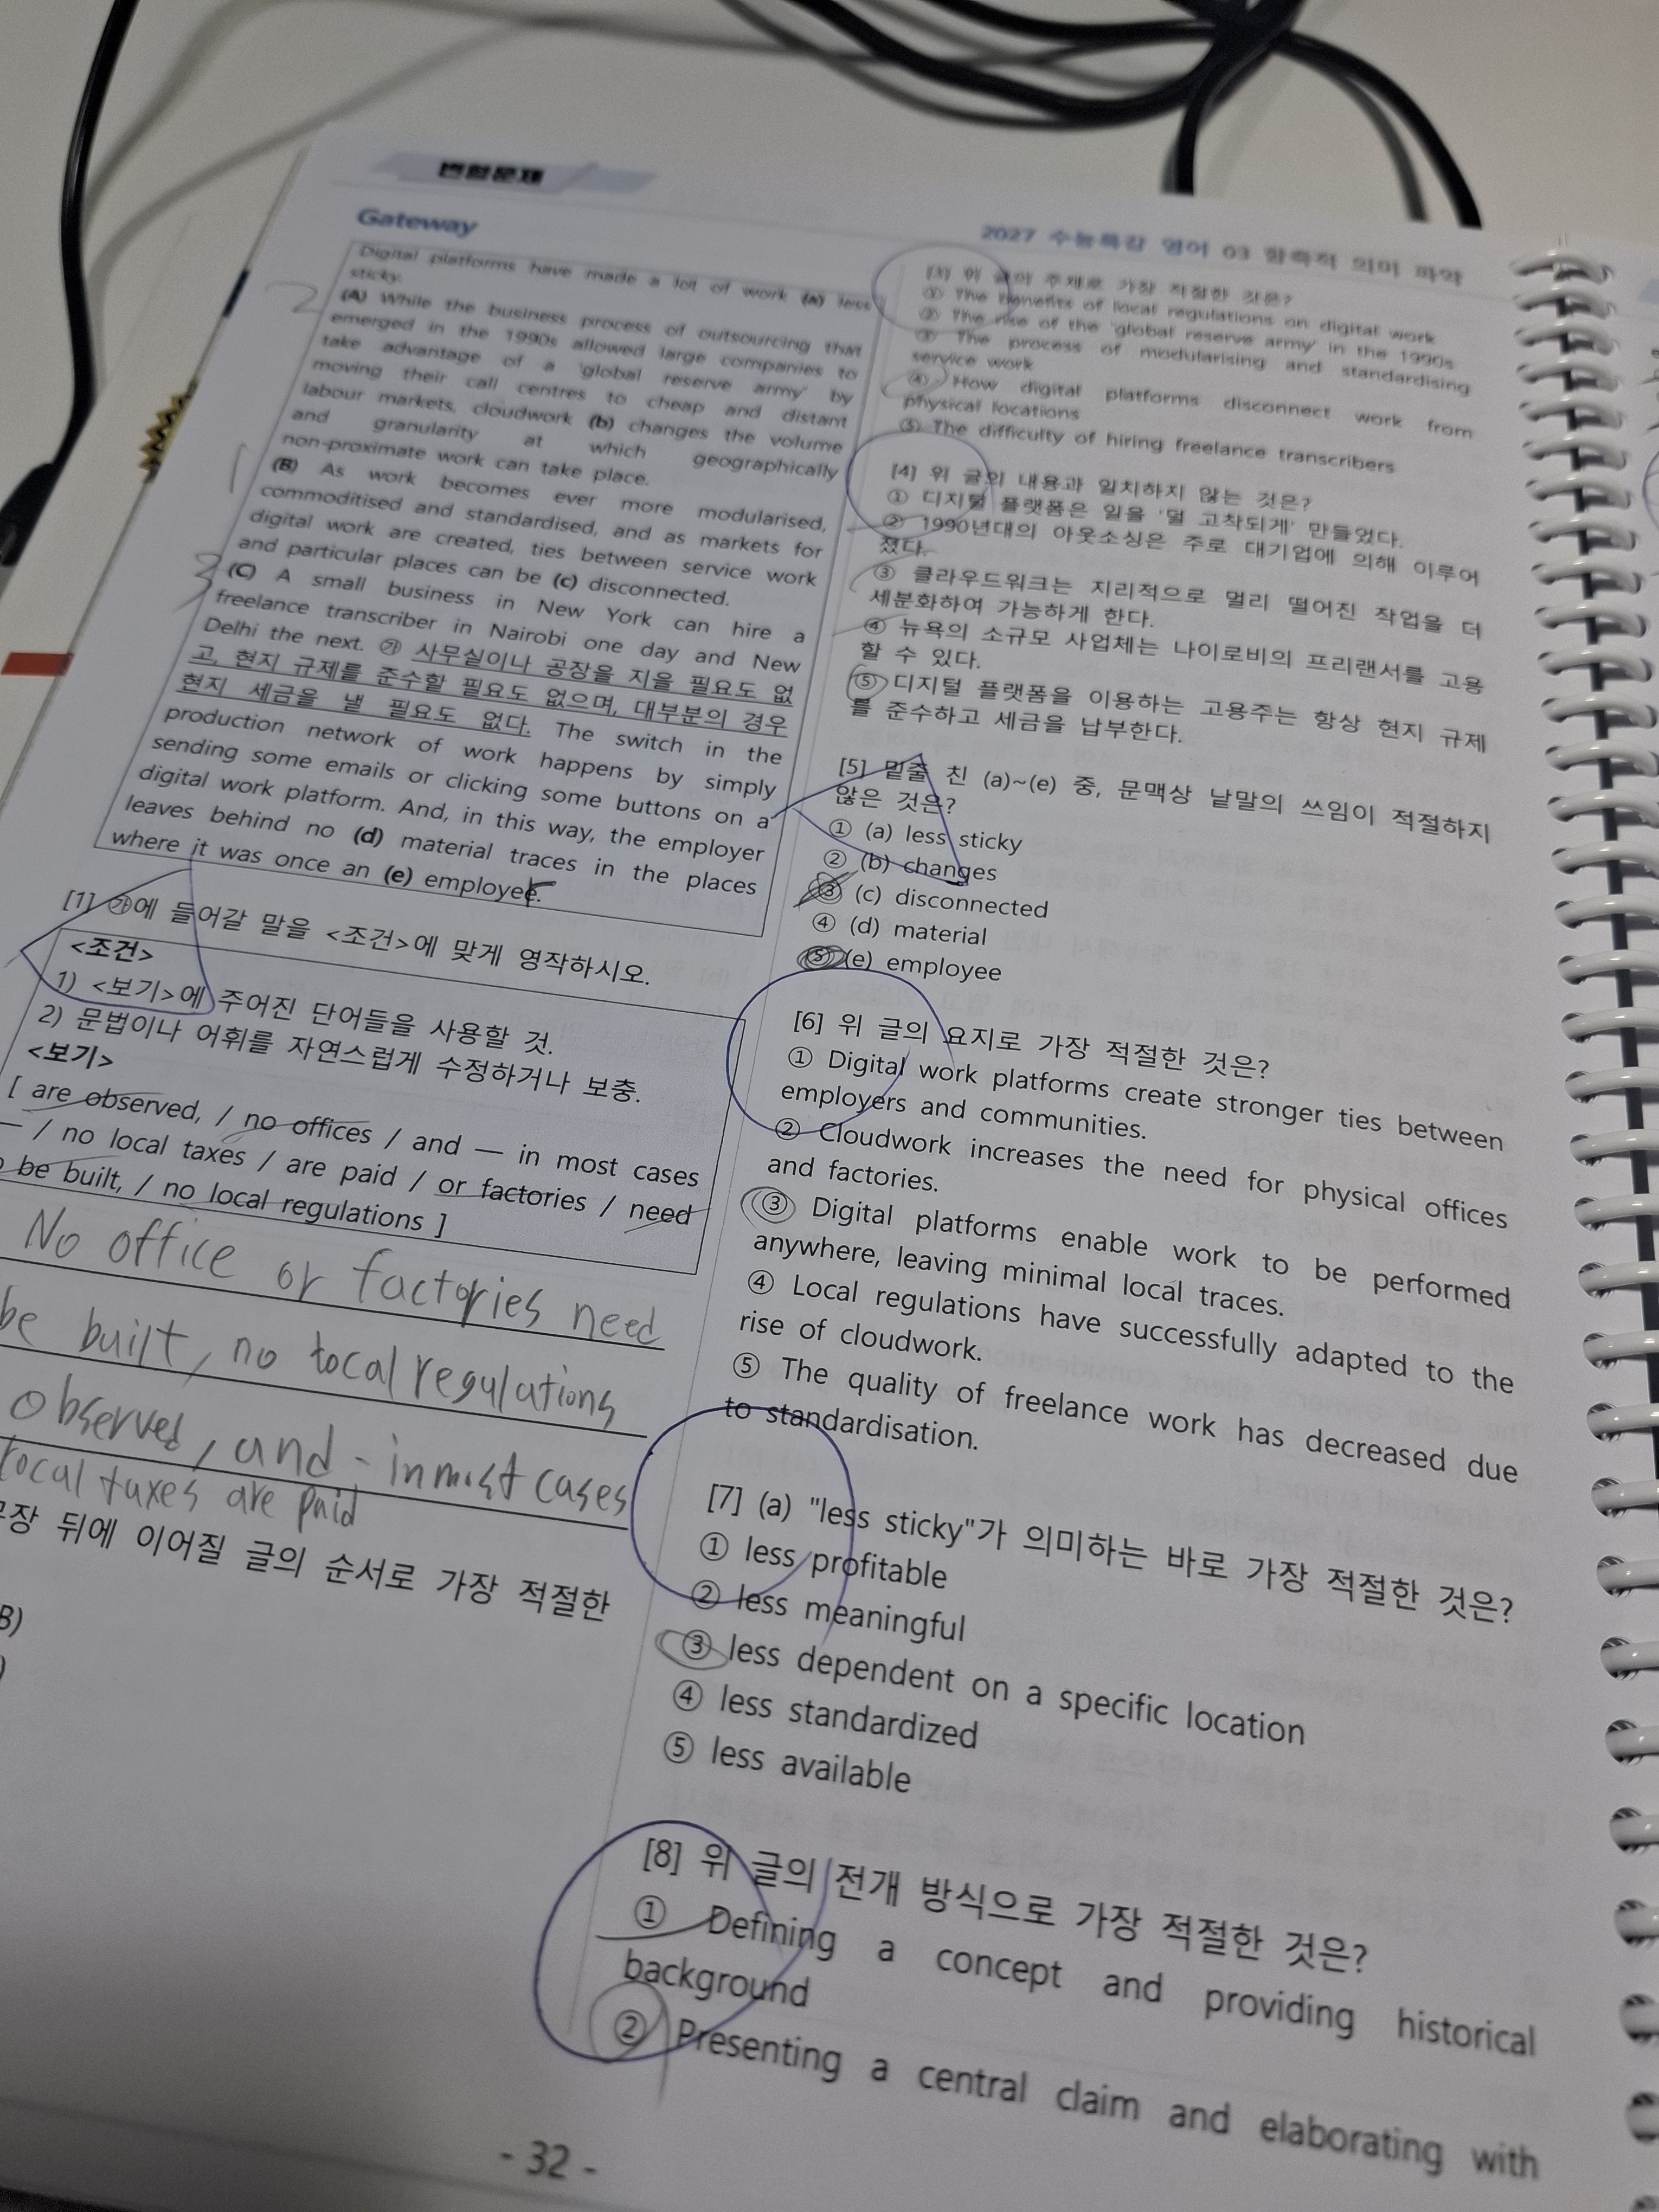 변형문제
Gateway
2027 수능특강 영어 03 함축적 의미 파악
Digital platforms have made a lot of work (a) less
sticky.
(A) While the business process of outsourcing that
emerged in the 1990s allowed large companies to
take advantage of a 'global reserve army' by
moving their call centres to cheap and distant
labour markets, cloudwork (b) changes the volume
and granularity at which geographically
non-proximate work can take place.
(B) As work becomes ever more modularised,
commoditised and standardised, and as markets for
digital work are created, ties between service work
and particular places can be (c) disconnected.
(C) A small business in New York can hire a
freelance transcriber in Nairobi one day and New
Delhi the next. ㉮ 사무실이나 공장을 지을 필요도 없
고, 현지 규제를 준수할 필요도 없으며, 대부분의 경우
현지 세금을 낼 필요도 없다. The switch in the
production network of work happens by simply
sending some emails or clicking some buttons on a
digital work platform. And, in this way, the employer
leaves behind no (d) material traces in the places
where it was once an (e) employee.
2
1
3
[1] ㉮에 들어갈 말을 <조건>에 맞게 영작하시오.
<조건>
1) <보기>에 주어진 단어들을 사용할 것.
2) 문법이나 어휘를 자연스럽게 수정하거나 보충.
<보기>
[ are observed, / no offices / and — in most cases
— / no local taxes / are paid / or factories / need
be built, / no local regulations ]
No office or factories need
be built, no local regulations
observed, and - in most cases
local taxes are paid
장 뒤에 이어질 글의 순서로 가장 적절한
B)
)
[3] 위 글의 주제로 가장 적절한 것은?
① The benefits of local regulations on digital work
② The rise of the 'global reserve army' in the 1990s
③ The process of modularising and standardising
service work
④ How digital platforms disconnect work from
physical locations
⑤ The difficulty of hiring freelance transcribers
[4] 위 글의 내용과 일치하지 않는 것은?
① 디지털 플랫폼은 일을 '덜 고착되게' 만들었다.
② 1990년대의 아웃소싱은 주로 대기업에 의해 이루어
졌다.
③ 클라우드워크는 지리적으로 멀리 떨어진 작업을 더
세분화하여 가능하게 한다.
④ 뉴욕의 소규모 사업체는 나이로비의 프리랜서를 고용
할 수 있다.
⑤ 디지털 플랫폼을 이용하는 고용주는 항상 현지 규제
를 준수하고 세금을 납부한다.
[5] 밑줄 친 (a)~(e) 중, 문맥상 낱말의 쓰임이 적절하지
않은 것은?
① (a) less sticky
② (b) changes
③ (c) disconnected
④ (d) material
⑤ (e) employee
[6] 위 글의 요지로 가장 적절한 것은?
① Digital work platforms create stronger ties between
employers and communities.
② Cloudwork increases the need for physical offices
and factories.
③ Digital platforms enable work to be performed
anywhere, leaving minimal local traces.
④ Local regulations have successfully adapted to the
rise of cloudwork.
⑤ The quality of freelance work has decreased due
to standardisation.
[7] (a) "less sticky"가 의미하는 바로 가장 적절한 것은?
① less profitable
② less meaningful
③ less dependent on a specific location
④ less standardized
⑤ less available
[8] 위 글의 전개 방식으로 가장 적절한 것은?
① Defining a concept and providing historical
background
② Presenting a central claim and elaborating with
- 32 -